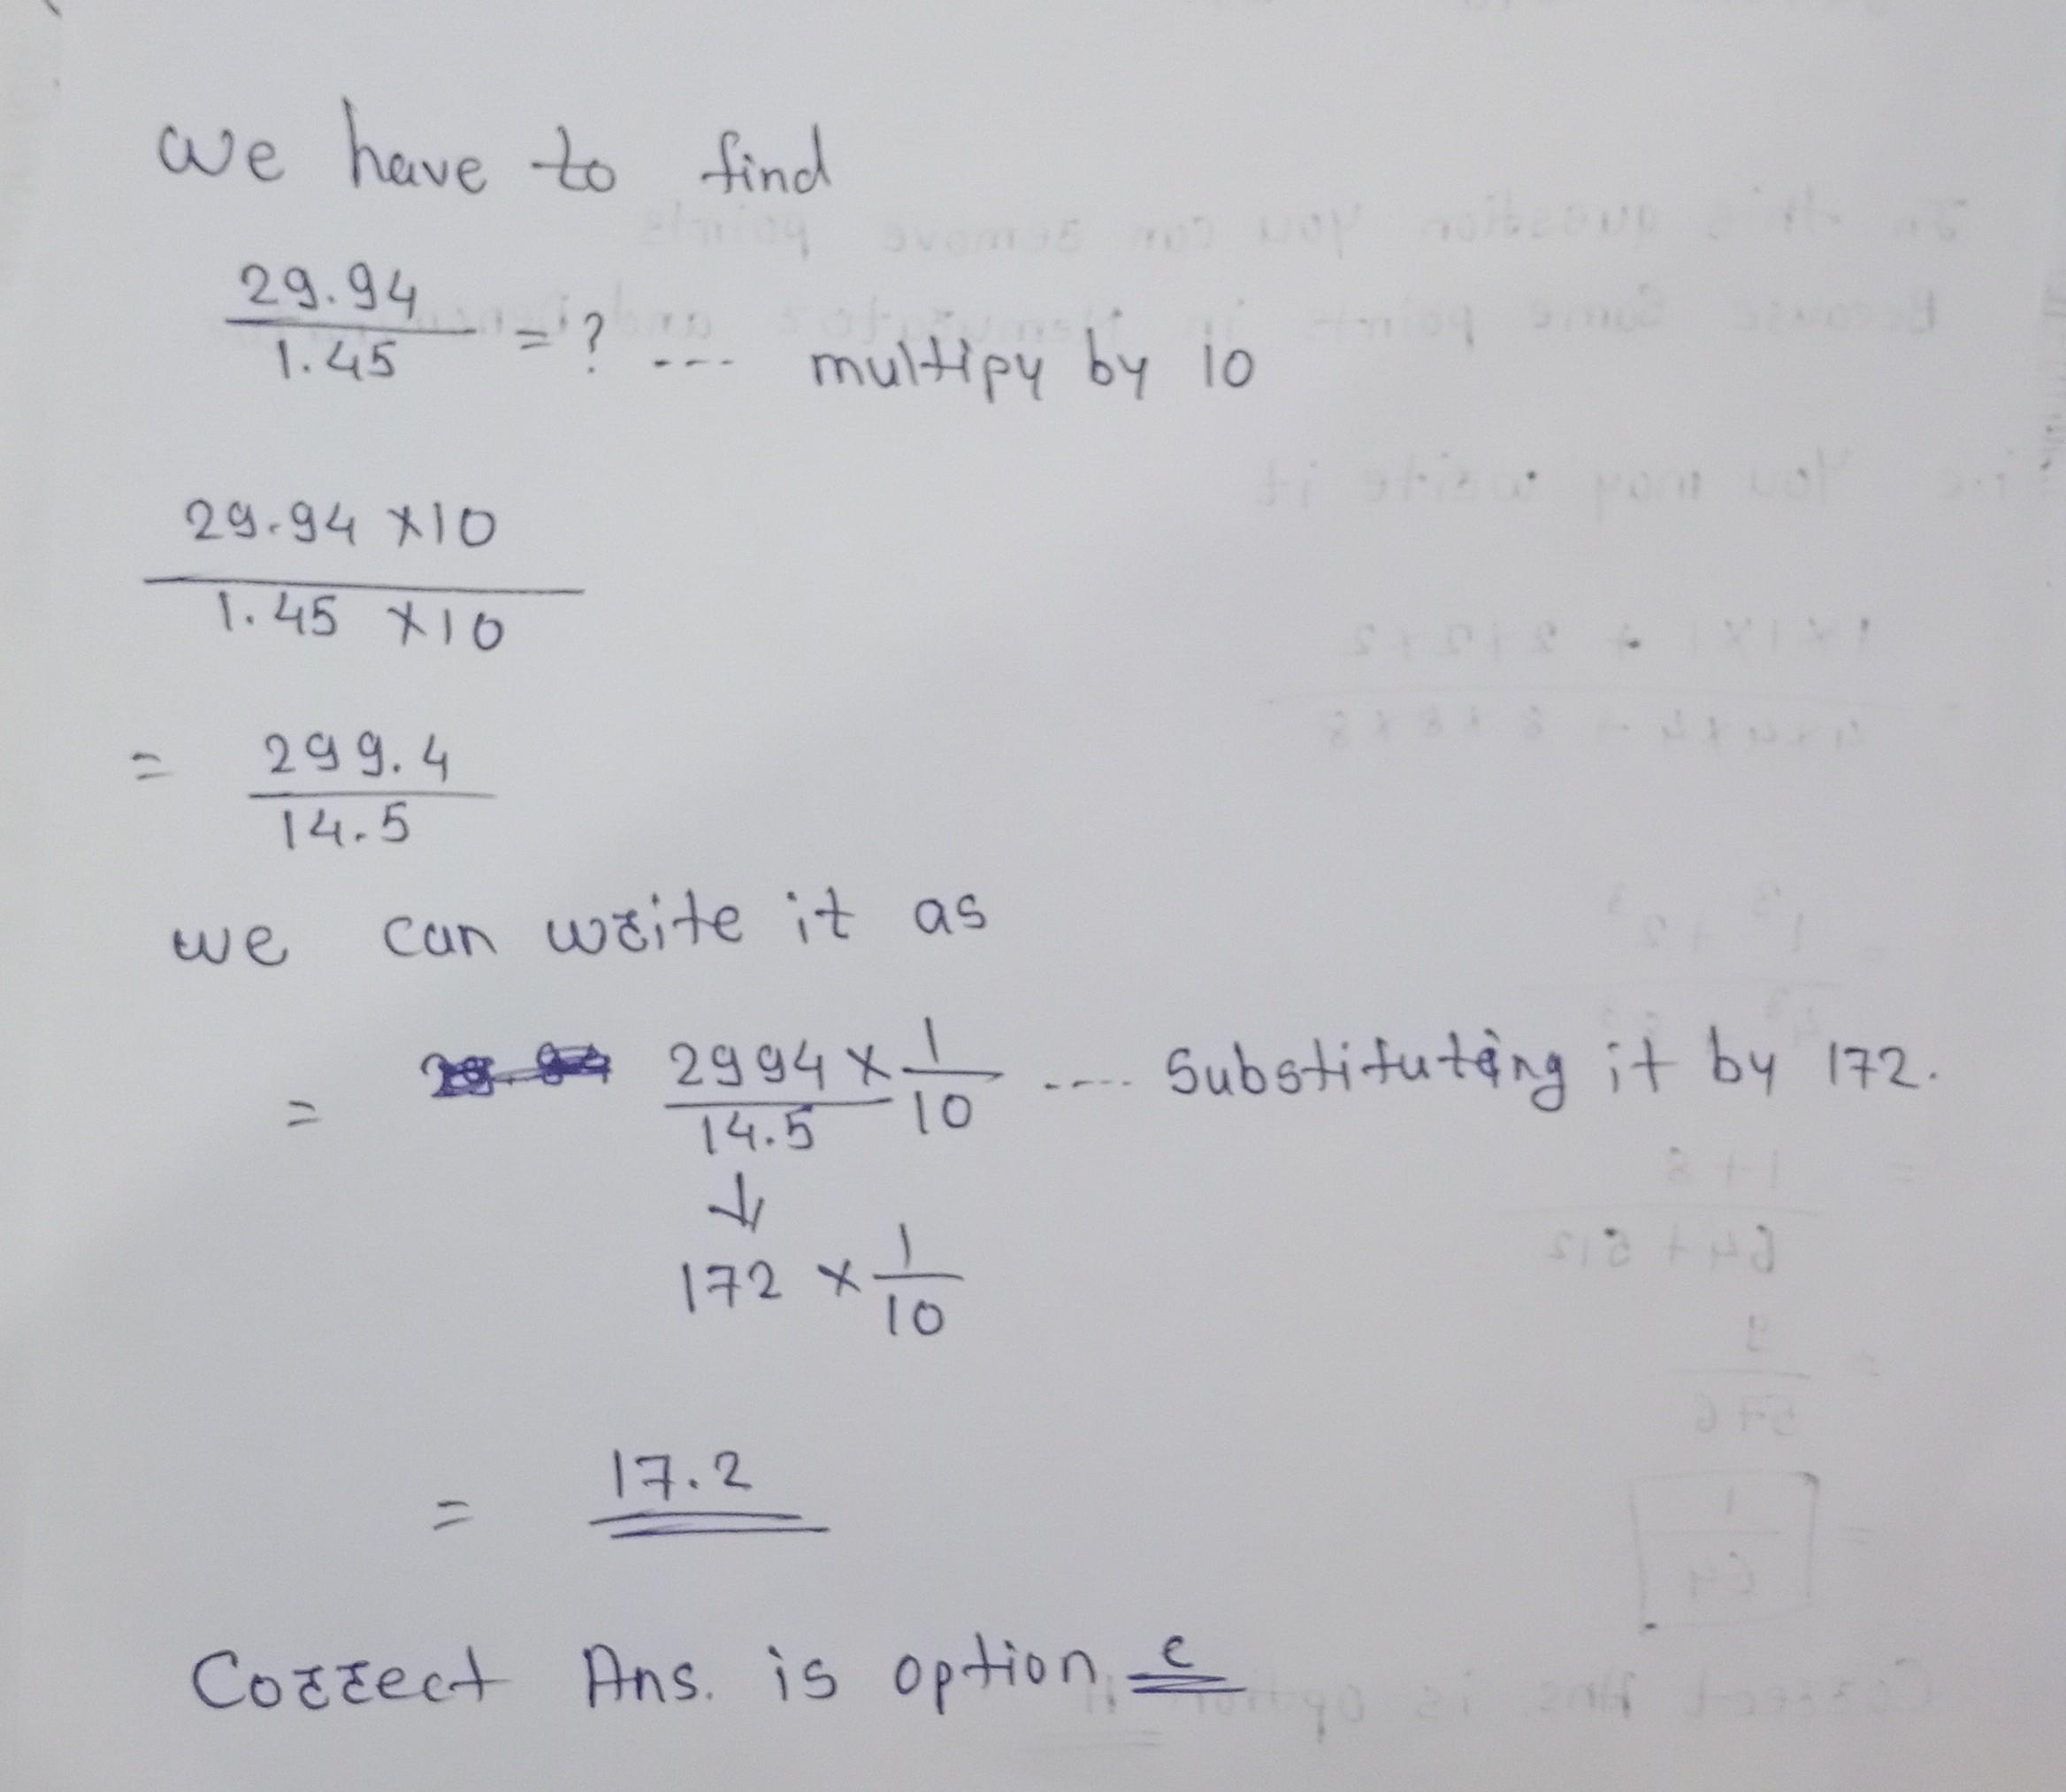 We have to find
29.94
1.45 = ? ---- multipy by 10
29.94 x10
1.45 x10
= 299.4
14.5
we can write it as
= 2994 x 1/10 ---- Substituting it by 172.
14.5
↓
172 x 1/10
= 17.2
Correct Ans. is option c